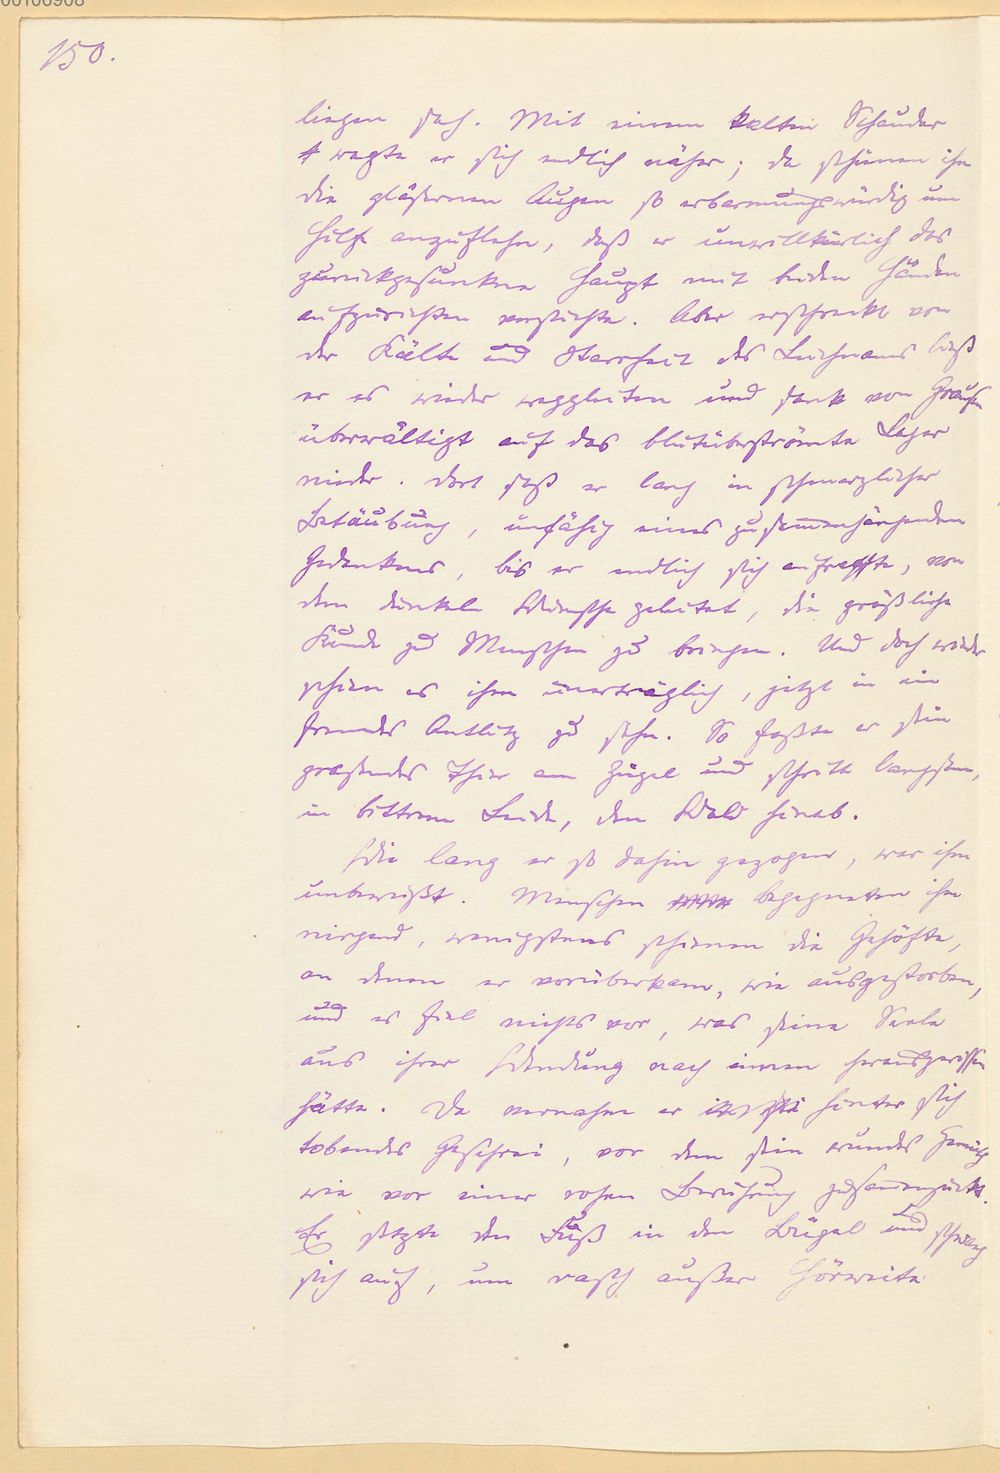 150.
liegen sah. Mit einem kalten Schauder
wagte er sich endlich näher; da schienen ihn
die gläsernen Augen so erbarmungswürdig um
Hilfe anzuflehn, daß er unwillkürlich das
zurückgesunkene Haupt mit beiden Händen
aufzurichten versuchte. Aber erschreckt von
der Kälte und Starrheit des Leichnams ließ
er es wieder weggleiten und sank von Grausen
überwältigt auf das blutüberströmte Lager
nieder. Dort saß er lang in schmerzlicher
Betäubung, unfähig eines zusammenhängenden
Gedankens, bis er endlich sich aufraffte, von
dem dunkeln Wunsche geleitet, die gräßliche
Kunde zu Menschen zu bringen. Und doch wieder
schien es ihm unerträglich, jetzt in ein
fremdes Antlitz zu sehn. So faßte er sein
grasendes Thier am Zügel und schritt langsam,
in bittrem Leide, den Wald hinab.
Wie lang er so dahin gezogen, war ihm
unbewußt. Menschen begegneten ihm
nirgend, wenigstens schienen die Gehöfte,
an denen er vorüberkam, wie ausgestorben,
und es fiel nichts vor, was seine Seele
aus ihrer Wendung nach innen herausgerissen
hätte. Da vernahm er hinter sich
tobendes Geschrei, vor dem sein wundes Gemüth
wie vor einer rohen Berührung zusammenzuckte.
Er setzte den Fuß in den Bügel und schwang
sich auf, um rasch außer Hörweite